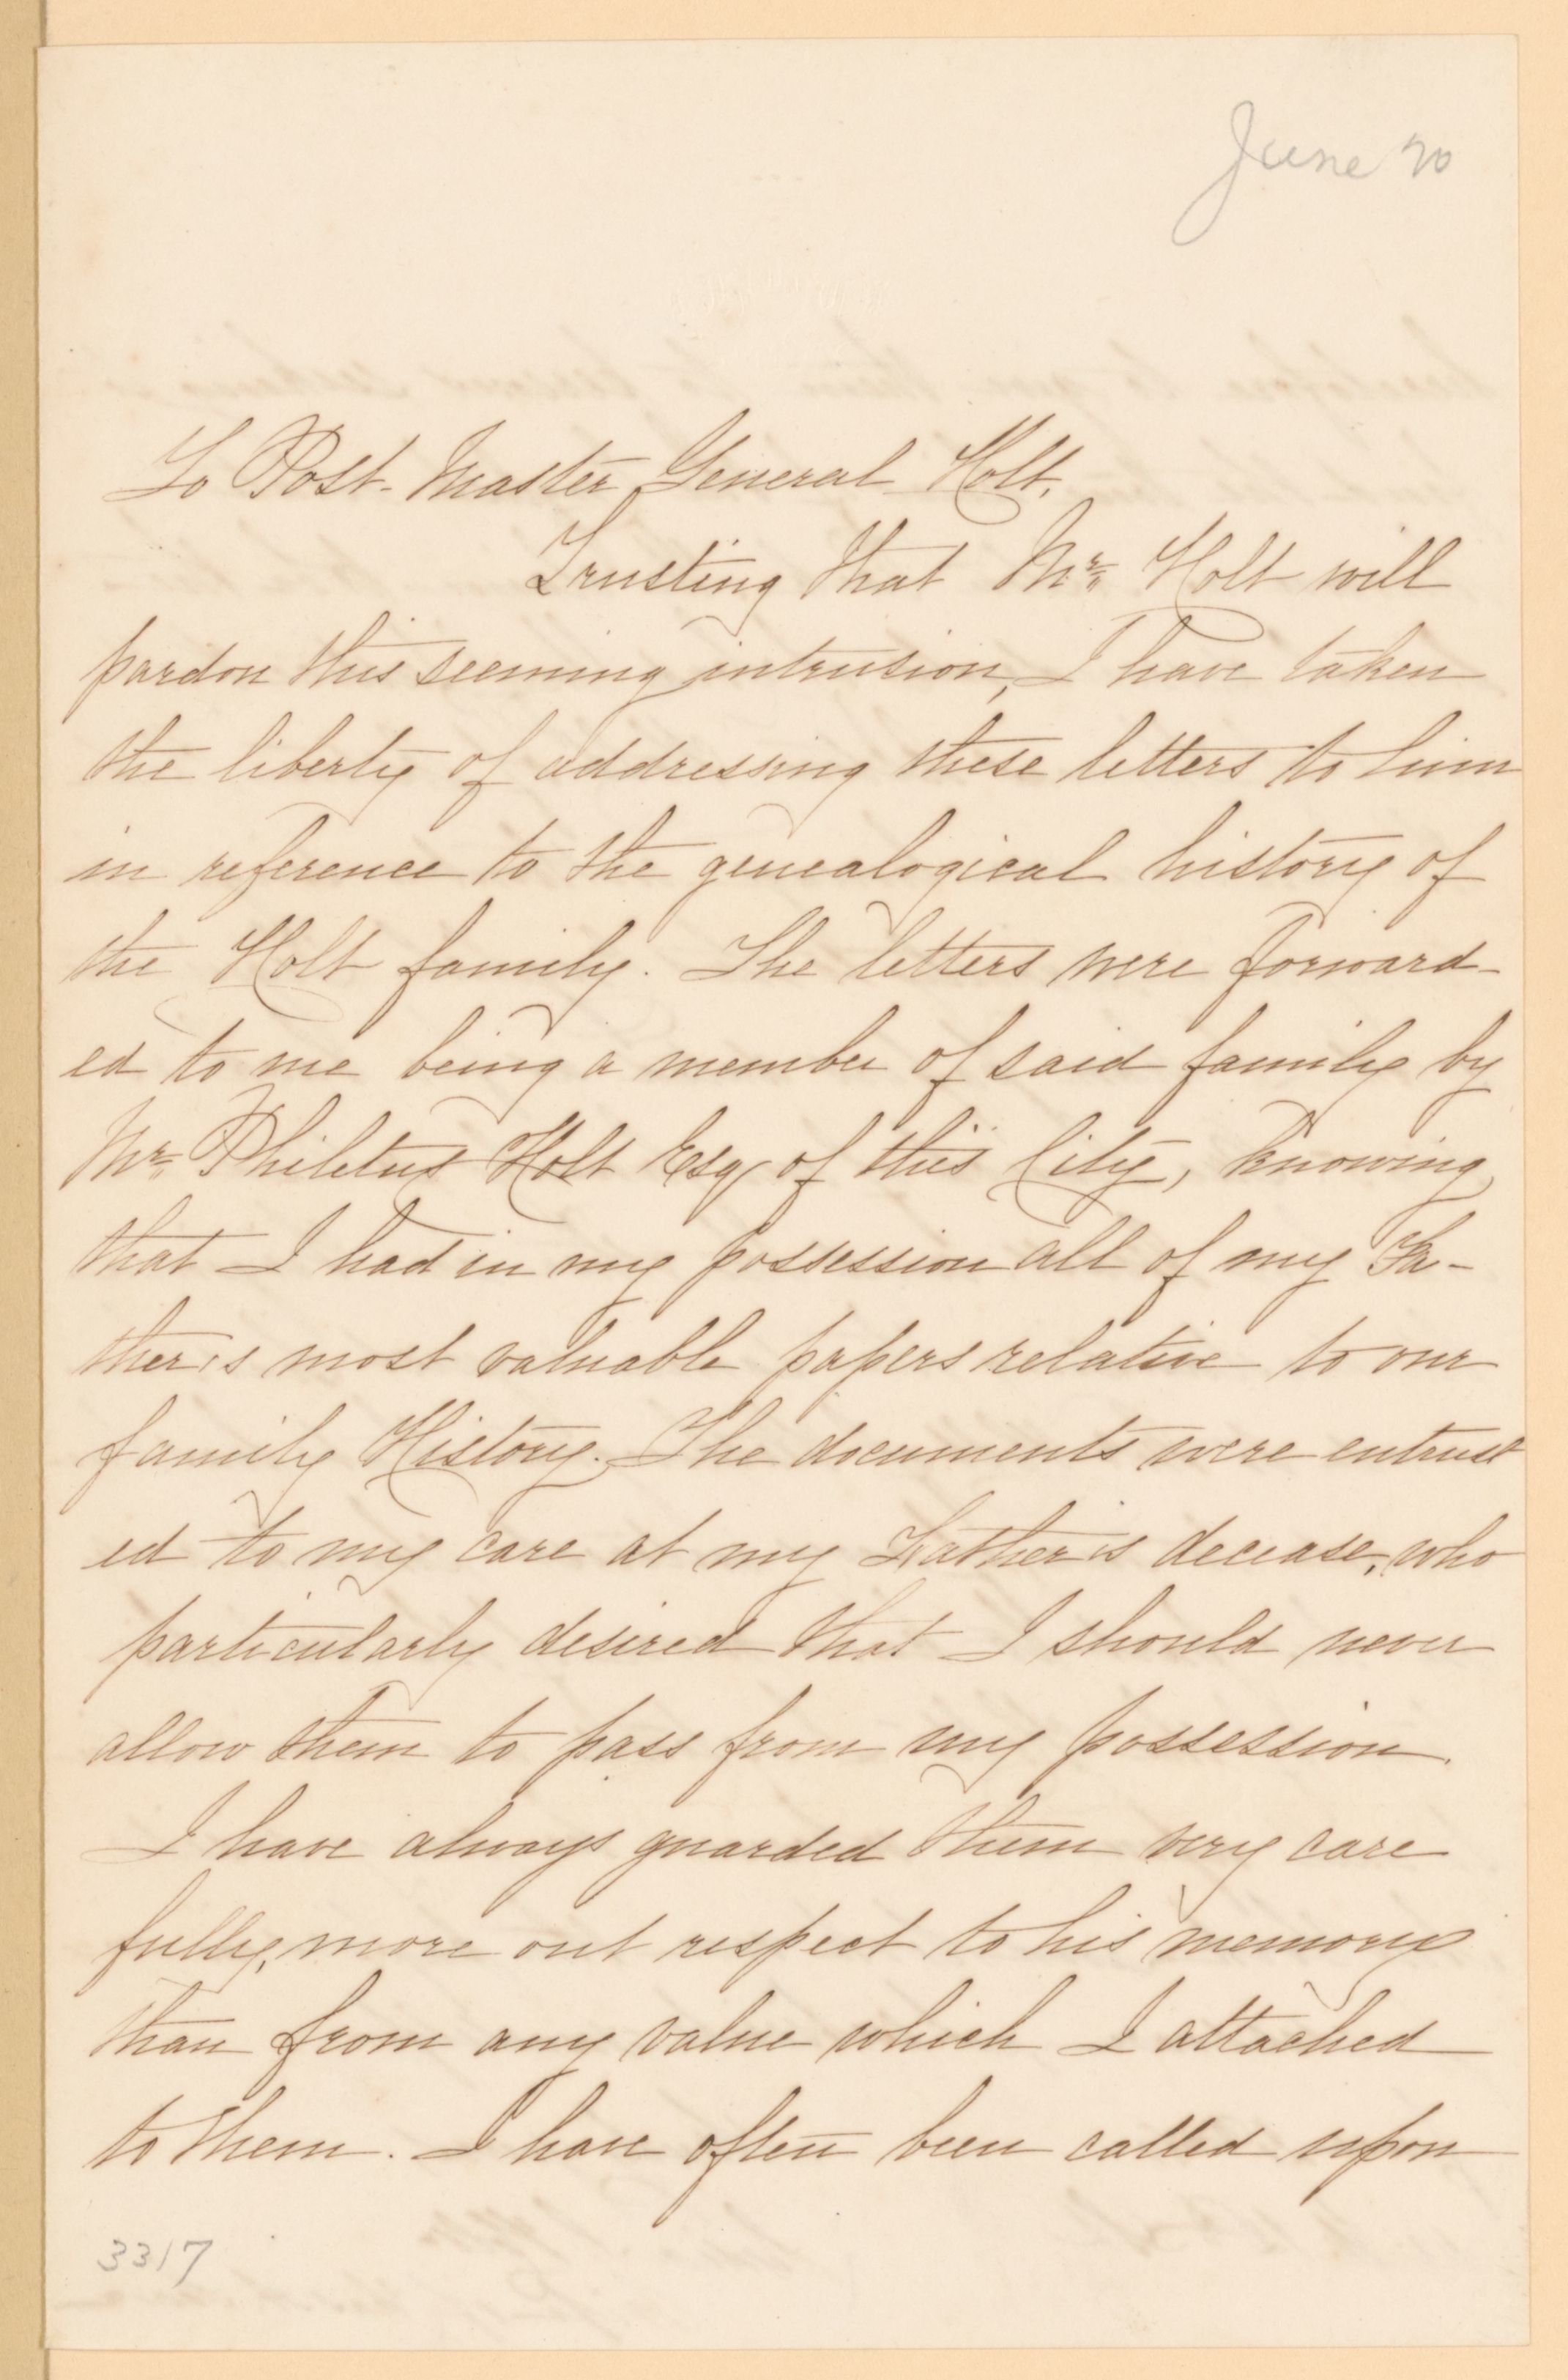 June 20
To Post-Master General Holt,
Trusting that Mr. Holt will
pardon this seeming intrusion, I have taken
the liberty of addressing these letters to him
in reference to the genealogical history of
the Holt family. The letters were forward-
ed to me being a member of said family by
Mr. Philetus Holt Esq of this City, knowing
that I had in my possession all of my Fa-
ther's most valuable papers relative to our
family History. The documents were entrust
ed to my care at my Father's decease, who
particularly desired that I should never
allow them to pass from my possession.
I have always guarded them very care
fully, more out respect to his memory
than from any value which I attached
to them. I have often been called upon
3317